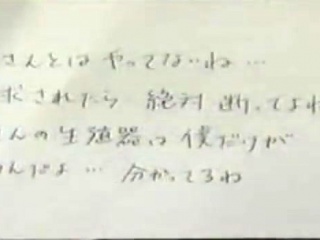 さんとは やってないね…
求されたら 絶対 断ってよね
んの生殖器は 僕だけが
んだよ… 分かってるね